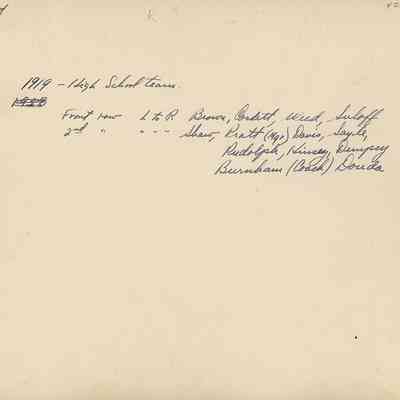 1919 – High School team.
Front row L to R Brown, Corbitt, Weed, Suloff
2nd " " - - - Shaw, Pratt (Mgr) Davis, Sayle,
Rudolph, Kinsey, Dempsey
Burnham (Coach) Douda